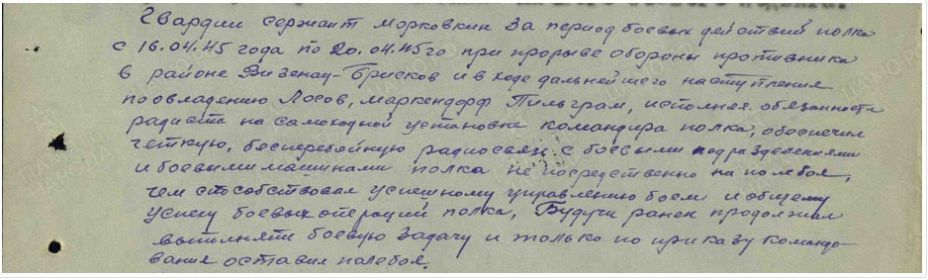 Гвардии сержант Морковкин за период боевых действий полка
с 16.04.45 года по 20.04.45го при прорыве обороны противника
в районе Визенау-Брисков и в ходе дальнейшего наступления
по овладению Лосов, Маркендорф Пильграм, исполняя обязанности
радиста на самоходной установке командира полка, обеспечил
четкую, бесперебойную радиосвязь с боевыми подразделениями
и боевыми машинами полка непосредственно на поле боя,
чем способствовал успешному управлению боем и общему
успеху боевых операций полка, Будучи ранен продолжал
выполнять боевую задачу и только по приказу командо-
вания оставил поле боя.